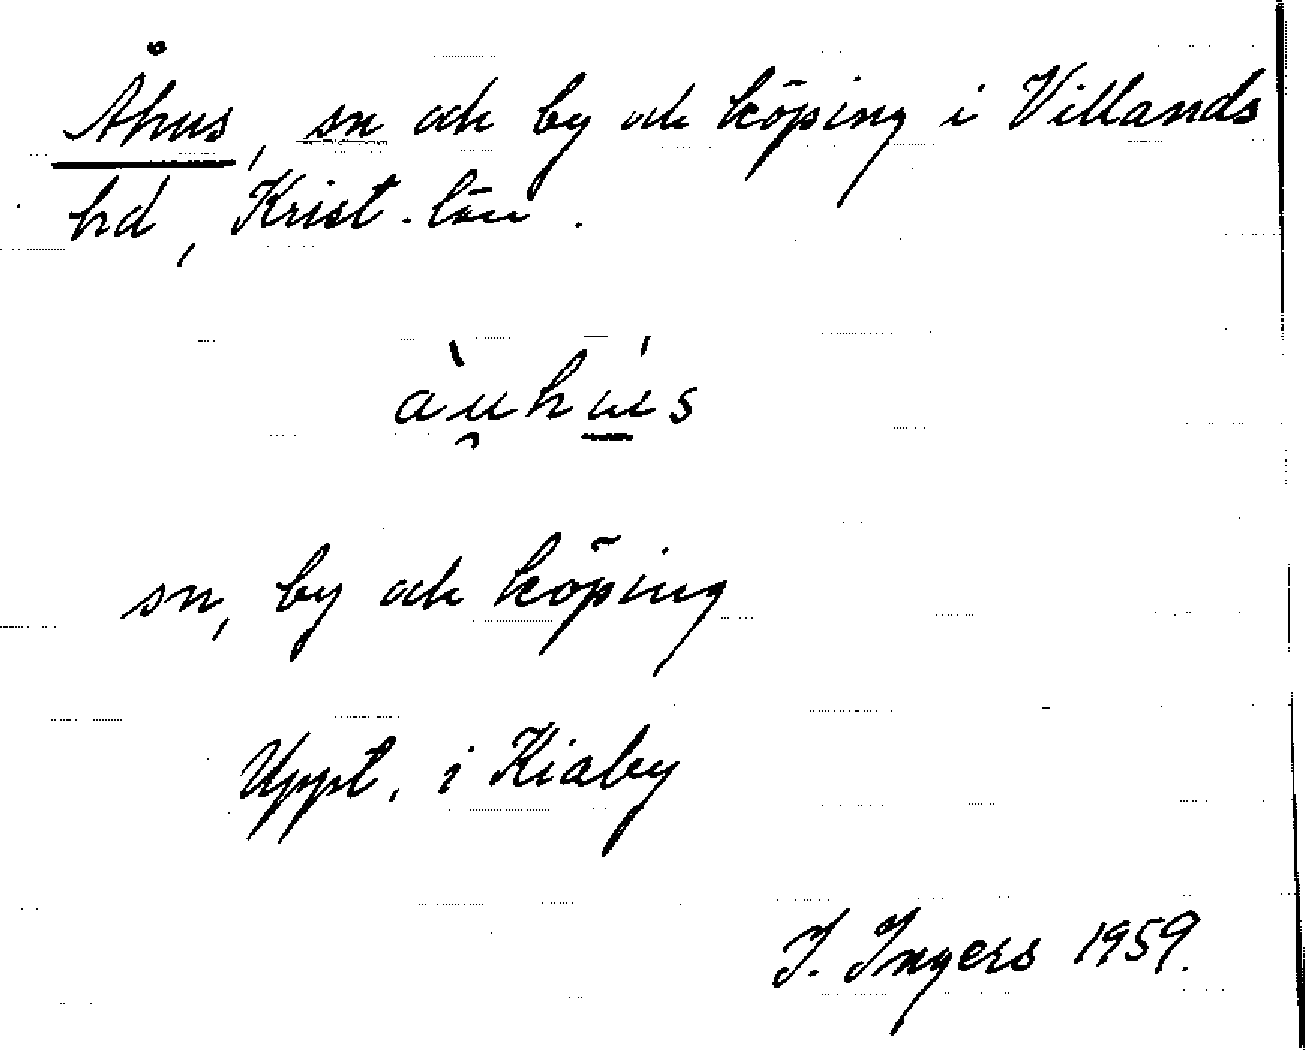 Åhus, sn och by och köping i Villands
hd, Krist. län.
àu̯hú̲s
sn, by och köping
Uppt. i Kiaby
I. Ingers 1959.